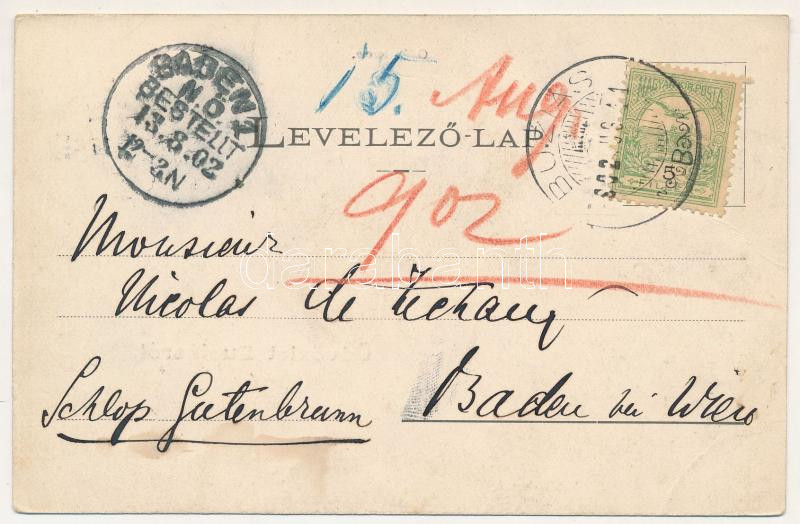 BADEN 1
N.Ö.
BESTELLT
13.8.02
12-3N
15. Aug
902
LEVELEZŐ-LAP
MAGYAR KIR. POSTA
BUZIÁS
darabanth
Monsieur
Nicolas de Zechany
Schloß Gutenbrunn
Baden bei Wien